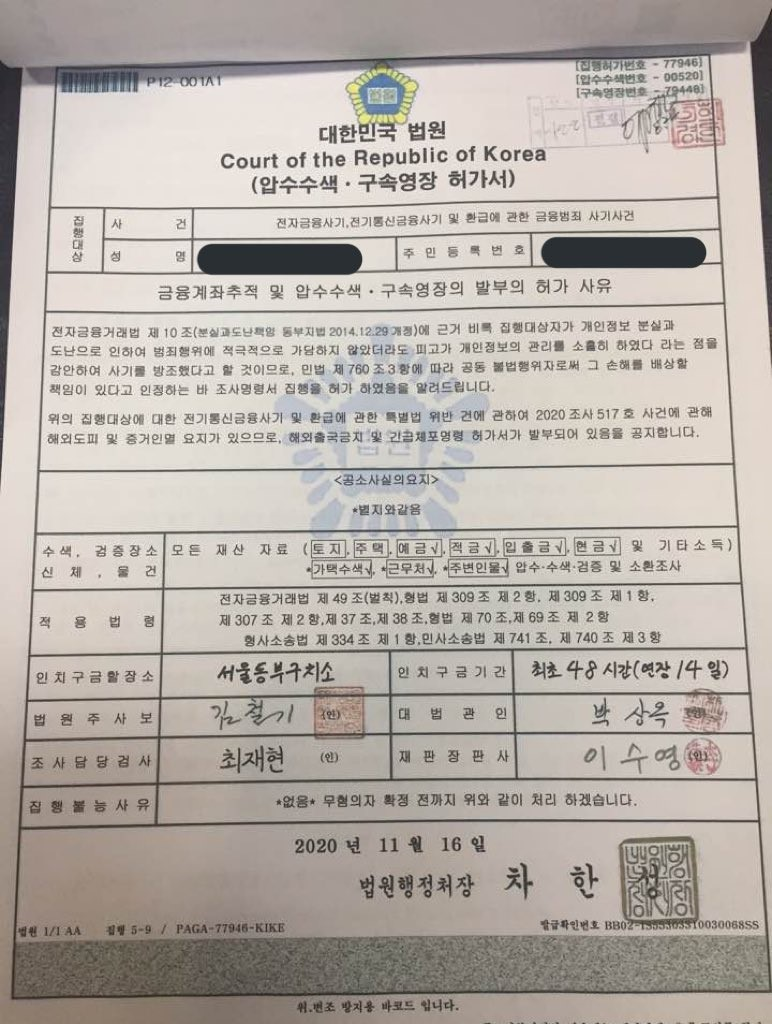 P12-001A1
[집행허가번호 - 77946]
[압수수색번호 - 00520]
[구속영장번호 - 79448]
법원
대한민국 법원
Court of the Republic of Korea
(압수수색·구속영장 허가서)
집행대상
사 건
전자금융사기,전기통신금융사기 및 환급에 관한 금융범죄 사기사건
성 명
주 민 등 록 번 호
금융계좌추적 및 압수수색·구속영장의 발부의 허가 사유
전자금융거래법 제 10 조(분실과도난책임 동부지법 2014.12.29 개정)에 근거 비록 집행대상자가 개인정보 분실과
도난으로 인하여 범죄행위에 적극적으로 가담하지 않았더라도 피고가 개인정보의 관리를 소홀히 하였다 라는 점을
감안하여 사기를 방조했다고 할 것이므로, 민법 제 760 조 3 항에 따라 공동 불법행위자로써 그 손해를 배상할
책임이 있다고 인정하는 바 조사명령서 집행을 허가 하였음을 알려드립니다.
위의 집행대상에 대한 전기통신금융사기 및 환급에 관한 특별법 위반 건에 관하여 2020 조사 517 호 사건에 관해
해외도피 및 증거인멸 요지가 있으므로, 해외출국금지 및 긴급체포명령 허가서가 발부되어 있음을 공지합니다.
법원
<공소사실의요지>
*별지와같음
수색, 검증장소
신체, 물건
모든 재산 자료 (토지, 주택, 예금√, 적금√, 입출금√, 현금√ 및 기타소득)
*가택수색√, *근무처√, *주변인물√ 압수·수색·검증 및 소환조사
적 용 법 령
전자금융거래법 제 49 조(벌칙),형법 제 309 조 제 2 항, 제 309 조 제 1 항,
제 307 조 제 2 항,제 37 조, 제 38 조,형법 제 70 조, 제 69 조 제 2 항
형사소송법 제 334 조 제 1 항,민사소송법 제 741 조, 제 740 조 제 3 항
인치구금할장소
서울동부구치소
인치구금기간
최초 48 시간(연장 14 일)
법원주사보
김철기
(인)
대 법 관 인
박 상 옥
(인)
조사담당검사
최재현
(인)
재판장판사
이 수 영
(인)
집행불능사유
*없음* 무혐의자 확정 전까지 위와 같이 처리 하겠습니다.
2020 년 11 월 16 일
법원행정처장 차 한 성
법원 1/1 AA 집행 5-9 / PAGA-77946-KIKE
발급확인번호 BB02-1355303310030068SS
위.변조 방지용 바코드 입니다.